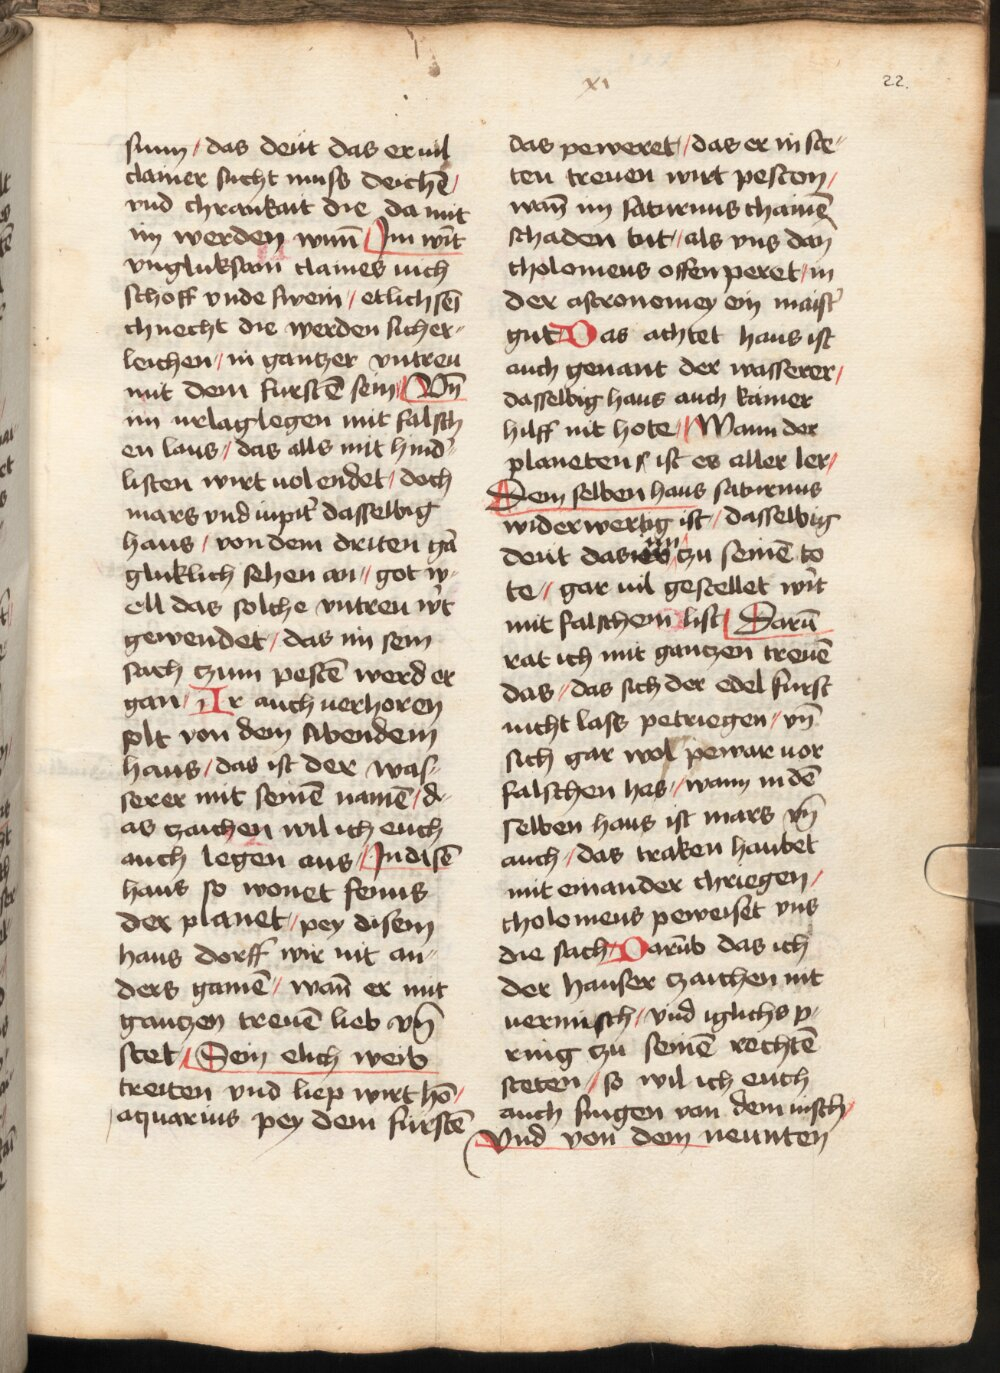 xi
22.
sunn / das deut das er uil
clainer sucht muss deichē /
vnd chrankait die da mit
im werden wirn̄ Im wirt
vngluksam claines uich
schoff vnde swein / etlich sei
chnecht die werden sicher-
leichen / in gantzer vntreu
mit dem furstē sein / Vn̄
im urlag legen mit falsch
en laus / das alls mit hind'
listen wirt uolendet / doch
mars vnd iupit' dasselbig
haus / von dem driten gā
gluklich sehen an / got w-
ell das solche vntreu w't
gewendet / das im sein
sach czum pestē werd er
gan / Ir auch uerhoren
solt von dem sibendem
haus / das ist der was-
serer mit seinē namē / d-
as czaichen wil ich euch
auch legen aus / In disē
haus so wonet fenus
der planet / pey disem
haus dorff wir nit an-
ders gamē / wan̄ er mit
gantzen treuē lieb vn̄
stet / Sein elich weib
treiten vnd liep wirt hō /
aquarius pey dem furstē
das peweret / das er in ste-
ten treuen wirt peston /
wan̄ im saturnus chainē
schaden tut / als vns dan
tholomeus offen peret / in
der astronomey ein maist'
gut Das achtet haus ist
auch genant der wasserer /
dasselbig haus auch kainer
hilff nit hote / Wann der
planeten s ist es aller ler /
Dem selben haus saturnus
widerwertig ist / dasselbig
deut das im czu seinē to
te / gar uil gestellet w't
mit falschem list / Darū
rat ich mit gantzen treuē
das / das sich der edel furst
nicht lass petriegen / vn̄
sich gar wol pewar uor
falschen has / wann in dē
selben haus ist mars vn̄
auch / das traken haubet
mit einander chriegen /
tholomeus peweiset vns
die sach Darūb das ich
der hauser czaichen nit
uermisch / vnd iglichs p-
ring czu seinē rechtē
steten / so wil ich euch
auch singen von dem uisch /
Vnd von dem neunten